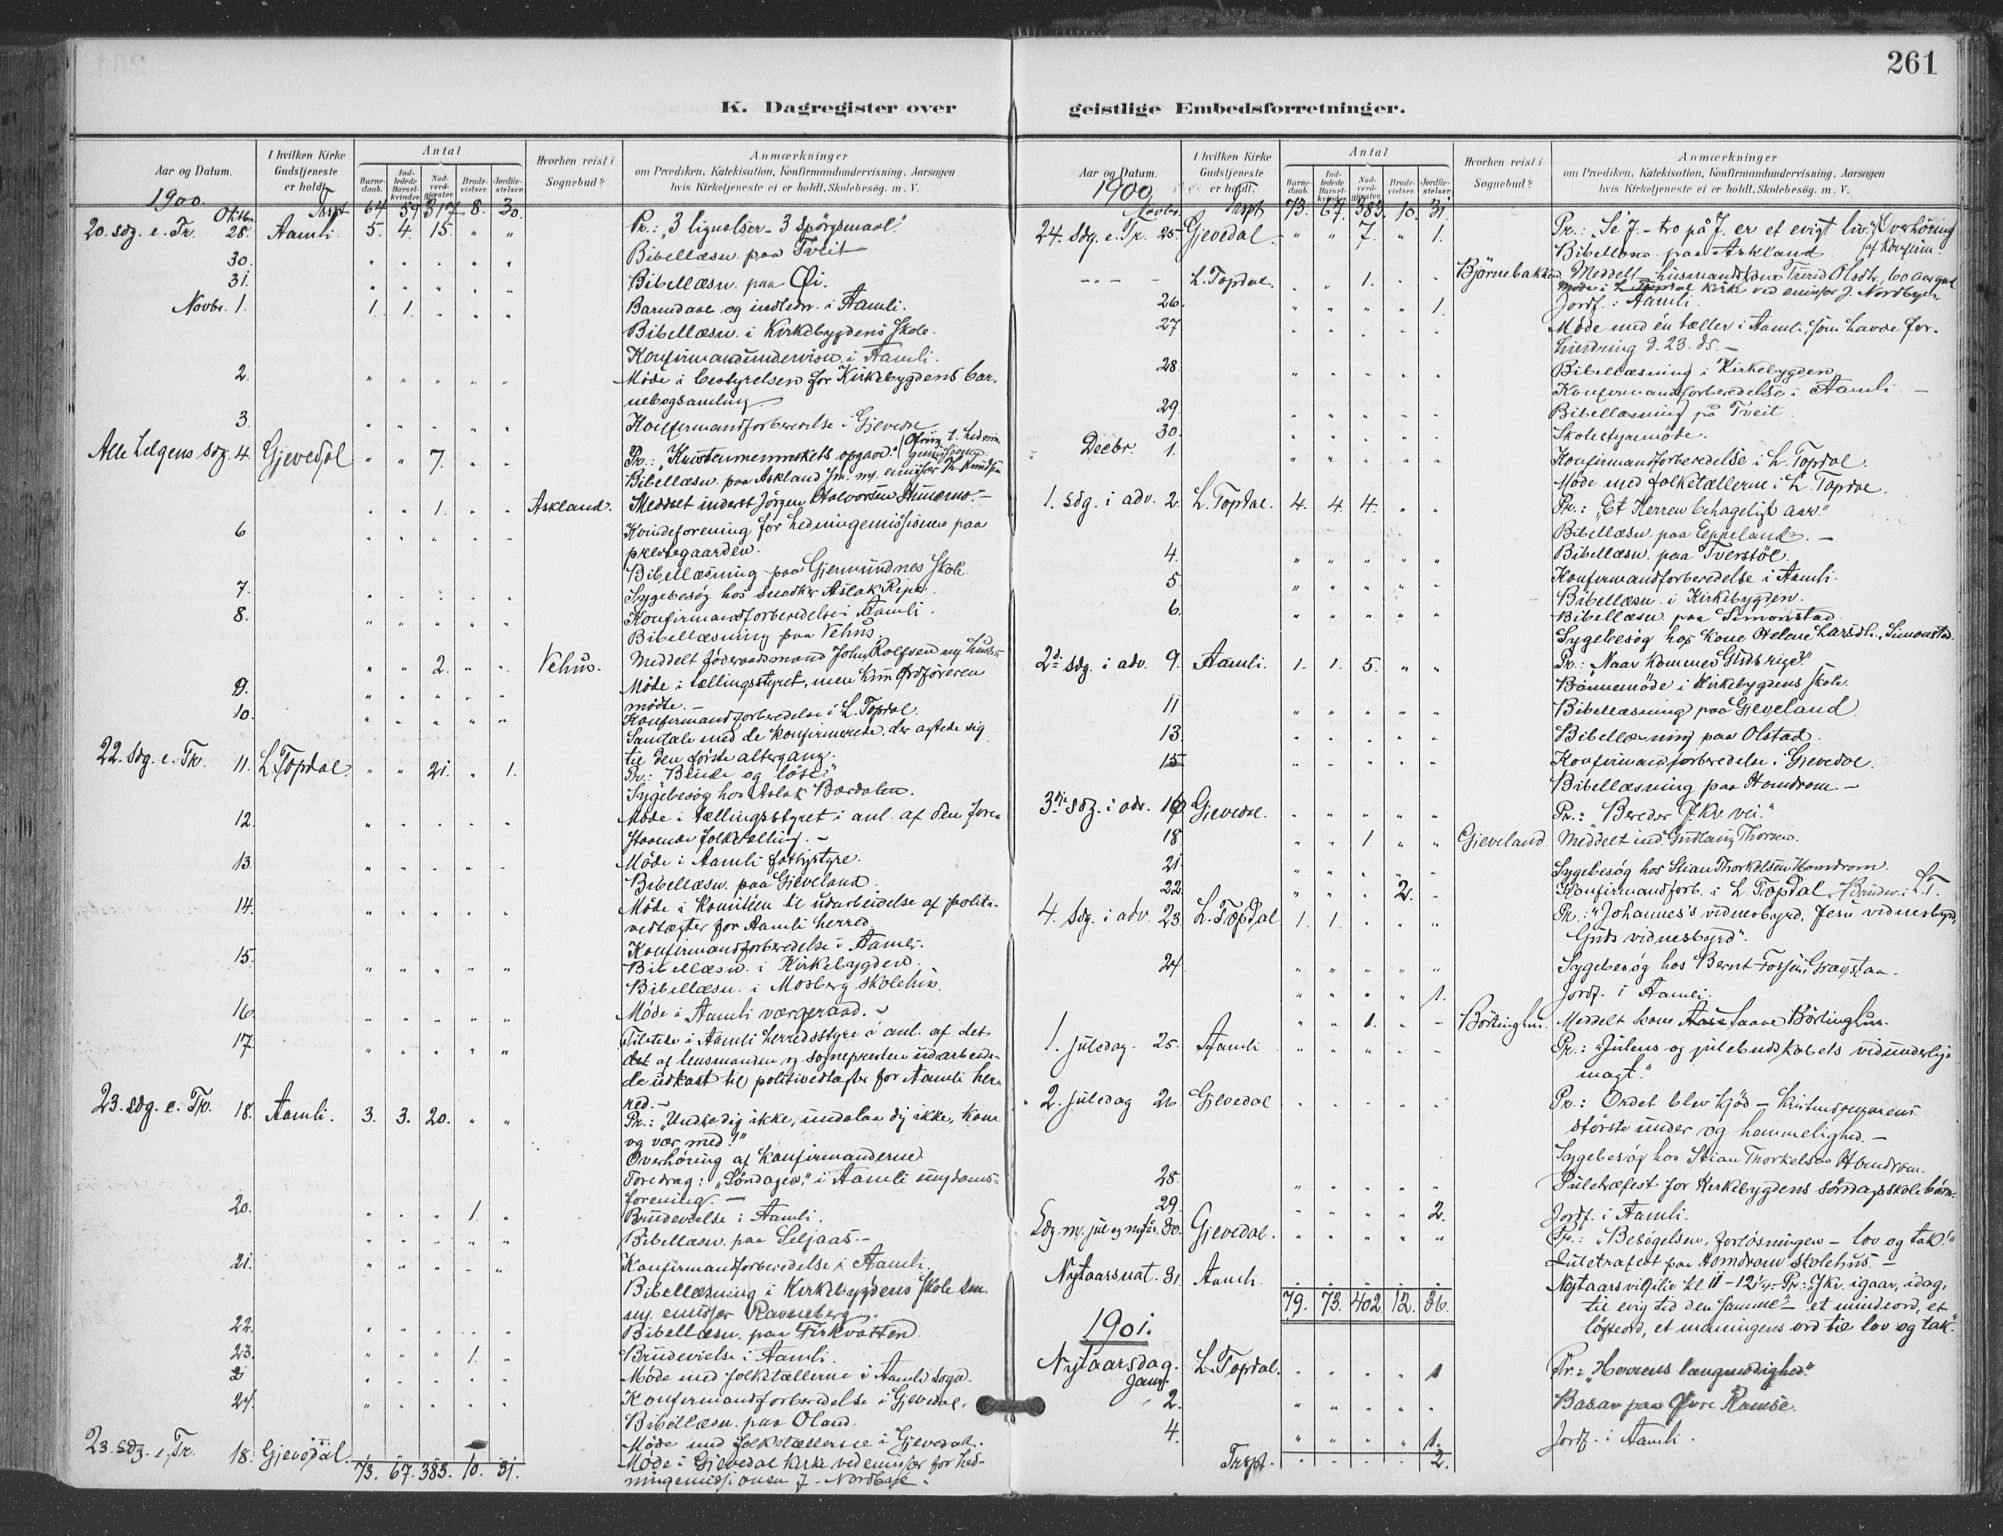 261
K. Dagregister over
Aar og Datum.
I hvilken Kirke Gudstjeneste er holdt.
Antal
Barnedaab.
Indledede Barselkvinder.
Nadverdgjester
Brudevielser.
Jordfæstelser
Hvorhen reist i Sognebud?
Anmærkninger
om Prædiken, Katekisation, Konfirmandundervisning, Aarsagen
hvis Kirketjeneste ei er holdt, Skolebesøg. m. V.
1900. Oktbr. Trspt 64 59 317 8. 30.
20. sdg. e. Tr. 28. Aamli. 5. 4. 15. " " Pr.: "3 lignelser – 3 spørgsmaal."
Bibellæsn. paa Tveit
30. " " " " "
31. " " " " " Bibellæsn. paa Øi.
Novbr. 1. 1 1 " " " Barnedaab og indledn. i Aamli.
Bibellæsn. i Kirkebygdens skole.
Konfirmandundervisn. i Aamli.
2. " " " " " Møde i bestyrelsen for Kirkebygdens bar-
nebogsamling.
3. " " " " " Konfirmandforberedelse i Gjevedal
Alle helgens sdg. 4. Gjevedal " " 7. " " Pr.: "Kristenmenneskets opgave."
Bibellæsn. paa Askland
" " 1. " " Askland. Meddelt inderst Jørgen Halvorsen
6 " " " " " Kvindeforening for hedningemissionen paa
prestegaarden.
Bibellæsning paa Gjermundnes skole
7. " " " " " Sygebesøg hos snedker Aslak Ripe
8. " " " " " Konfirmandforberedelse i Aamli.
Bibellæsning paa Vehus.
" " 2. " " Vehus. Meddelt føderaadsmand John Rolfsen
9. " " " " " Møde i tællingsstyret, men kun Ordføreren
mødte. –
10. " " " " " Konfirmandforberedelse i L. Topdal.
Samtale med de konfirmerede, der agtede sig
til den første altergang.
22. sdg. e. Tr. 11. L. Topdal. " " 21. " 1. Pr.: "Binde og løse."
Sygebesøg hos Aslak Bærdalen.
12. " " " " " Møde i tællingsstyret i anl. af den fore-
staaende folketælling. –
13. " " " " " Møde i Aamli fattigstyre.
Bibellæsn. paa Gjeveland.
14. " " " " " Møde i komitéen til udarbeidelse af politi-
vedtægter for Aamli herred.
Konfirmandforberedelse i Aamli.
15. " " " " " Bibellæsn. i Kirkebygden.
Bibellæsn. i Mosberg skolehus.
16. " " " " " Møde i Aamli værgeraad. –
17. " " " " " Tilstede i Aamli herredsstyre i anl. af det
det af lensmanden og sognepresten udarbeide-
de udkast til politivedtægter for Aamli her-
red. –
23. sdg. e. Tr. 18. Aamli. 3. 3. 20. " " Pr.: "Undse dig ikke, undslaa dig ikke, kom
og vær med!"
Overhøring af konfirmanderne
Foredrag: "Søndagen," i Aamli ungdoms-
forening. –
20. " " " 1. " Brudevielse i Aamli.
" " " " " Bibellæsn. paa Seljaas. –
21. " " " " " Konfirmandforberedelse i Aamli
Bibellæsning i Kirkebygdens skole
emissær Ravneberg.
22. " " " " " Bibellæsn. paa
23. " " " 1. " Brudevielse i Aamli.
" " " " " Møde med folketællerne i Aamli sogn.
24. " " " " " Konfirmandforberedelse i Gjevedal.
Bibellæsn. paa Oland.
Møde med folketællerne i Gjevedal.
23. sdg. e. Tr. 18. Gjevedal 73. 67. 383. 10. 31. Møde i Gjevedal kirke ved emissær for hed-
ningemissionen J. Nordbøe.
geistlige Embedsforretninger.
Aar og Datum.
I hvilken Kirke Gudstjeneste er holdt.
Antal
Barnedaab.
Indledede Barselkvinder.
Nadverdgjester
Brudevielser.
Jordfæstelser
Hvorhen reist i Sognebud?
Anmærkninger
om Prædiken, Katekisation, Konfirmandundervisning, Aarsagen
hvis Kirketjeneste ei er holdt, Skolebesøg. m. V.
1900 Novbr. Trspt 73. 67. 383. 10. 31.
24. sdg. e. Tr. 25. Gjevedal " " 7. " 1. Pr.: "Se J. – tro på J. er et evigt liv." Overhøring
af konfirm.
Bibellæsn. paa Askland
– – – " L. Topdal. " " 1. " " Bjørnebakken. Meddelt husmandskone Turid Olsdtr.
Møde i L. Topdal kirke ved emissær J. Nordbøe
26. " " " " 1. Jordf. i Aamli.
27 " " " " " Møde med én tæller i Aamli, som havde for-
hindring d. 23. ds –
28 " " " " " Bibellæsning i Kirkebygden
Konfirmandforberedelse i Aamli. –
29. " " " " " Bibellæsning på Tveit.
30. " " " " " Skolestyremøde.
Decbr. 1. " " " " " Konfirmandforberedelse i L. Topdal.
Møde med folketællerne i L. Topdal.
1. sdg. i adv. 2. L. Topdal. 4. 4 4. " " Pr.: "Et Herrens behageligt aar."
Bibellæsn. paa Eppeland. –
4. " " " " " Bibellæsn. paa Tverstøl.
5. " " " " " Konfirmandforberedelse i Aamli.
Bibellæsn. i Kirkebygden.
6. " " " " " Bibellæsn. paa Simonstad.
Sygebesøg hos kone Helene Larsdtr., Simonstad.
2den sdg. i adv. 9. Aamli. 1. 1. 5. " " Pr.: "Naar kommer Guds rige?" –
Børnemøde i Kirkebygdens skole.
11 " " " " " Bibellæsning paa Gjeveland.
13. " " " " " Bibellæsning paa Olstad.
15 " " " " " Konfirmandforberedelse i Gjevedal.
Bibellæsning paa Homdrom. –
3die sdg. i adv. 16 Gjevedal. " " " " " Pr.: "Bereder J. Kr. vei."
18 " " 1. " " Gjeveland. Meddelt ind. Gudlaug Thorsen.
21. " " " " " Sygebesøg hos Stian Thorkelsen Homdrom.
22. " " " 2. " Konfirmandforb. i L. Topdal. Brudev. i L. T.
4. sdg. i adv. 23. L. Topdal 1. 1. " " " Pr.: "Johannes's vidnesbyrd, Jesu vidnesbyrd,
Guds vidnesbyrd".
24 " " " " " Sygebesøg hos Bernt
" " " " 1. Jordf. i Aamli.
" " 1. " " Børtinghus. Meddelt kone Saave Børtinghus.
1. juledag 25. Aamli " " " " " Pr.: "Julens og julebudskabets vidunderlige
magt."
2. juledag 26. Gjevedal " " " " " Pr.: Ordet blev kjød – kristendommens
største under og hemmelighed. –
Sygebesøg hos Stian Thorkelsen Homdrom.
28. " " " " " Juletræfest for Kirkebygdens søndagsskolebørn.
29. " " " " 2. Jordf. i Aamli.
Sdg. m. jul og nytår. 30. Gjevedal. " " " " " Pr.: "Besøgelsen, forløsningen – lov og tak!"
Juletræfest paa Homdrom skolehus. –
Nytaarsnat. 31. Aamli. " " " " " Nytaarsvigilie kl 11 – 12¼. Pr.: J. Kr. igaar, idag,
79. 73. 402. 12. 36. til evig tid den samme" – et mindeord, et
løfteord, et maningens ord til lov og tak."
1901.
Nytaarsdag. L. Topdal. " " " " 1 Pr.: "Herrens langmodighed."
Janr. 2. " " " " " Basar paa Øvre Ramse.
4. " " " " 1. Jordf. i Aamli.
Trspt. " " " " 2.